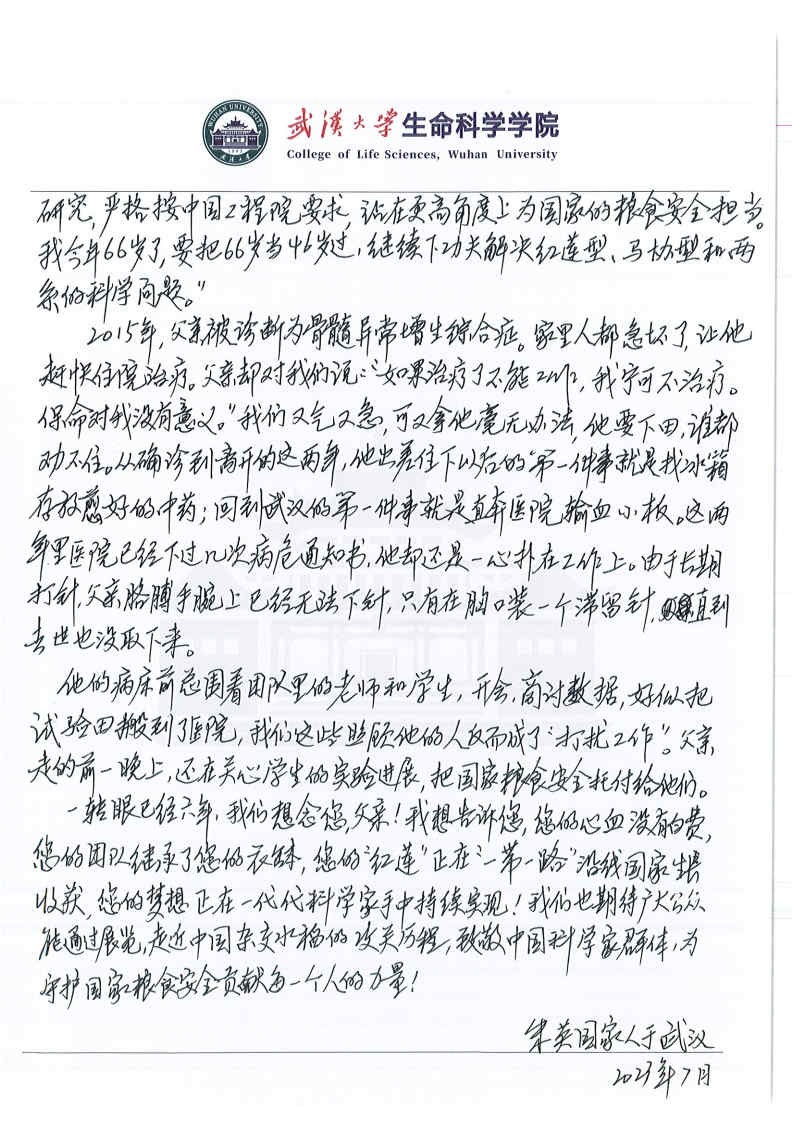 WUHAN UNIVERSITY
1893
武汉大学
武漢大学 生命科学学院
College of Life Sciences, Wuhan University
研究，严格按中国工程院要求，站在更高角度上为国家的粮食安全担当。
我今年66岁了，要把66岁当46岁过，继续下功夫解决红莲型、马协型和两
系的科学问题。"
2015年，父亲被诊断为骨髓异常增生综合症。家里人都急坏了，让他
赶快住院治疗。父亲却对我们说："如果治疗了不能工作，我宁可不治疗。
保命对我没有意义。"我们又气又急，可又拿他毫无办法，他要下田，谁都
劝不住。从确诊到离开的这两年，他出差住下以后的第一件事就是找冰箱
存放煎好的中药；回到武汉的第一件事就是直奔医院输血小板。这两
年里医院已经下过几次病危通知书，他却还是一心扑在工作上。由于长期
打针，父亲胳膊手腕上已经无法下针，只有在胸口装一个滞留针，直到
去世也没取下来。
他的病床前总围着团队里的老师和学生，开会，商讨数据，好似把
试验田搬到了医院，我们这些照顾他的人反而成了"打扰工作"。父亲
走的前一晚上，还在关心学生的实验进展，把国家粮食安全托付给他们。
一转眼已经六年，我们想念您，父亲！我想告诉您，您的心血没有白费，
您的团队继承了您的衣钵，您的"红莲"正在"一带一路"沿线国家生长
收获，您的梦想正在一代代科学家手中持续实现！我们也期待广大公众
能通过展览，走近中国杂交水稻的攻关历程，致敬中国科学家群体，为
守护国家粮食安全贡献每一个人的力量！
朱英国家人于武汉
2023年7月